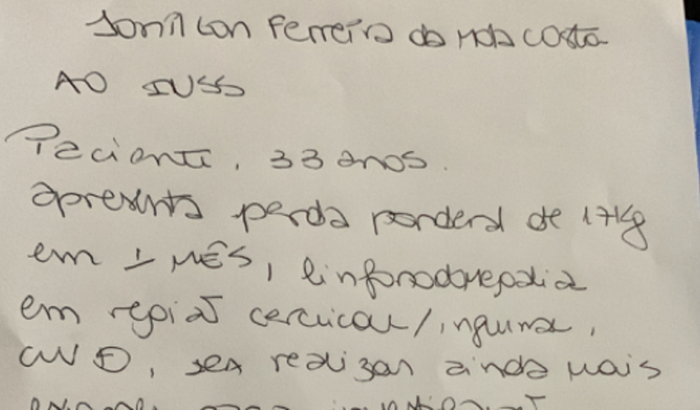 Jonilson Ferreira da Mota Costa
AO INSS
Paciente, 33 anos.
apresenta perda ponderal de 17kg
em 1 MÊS, linfonodomegalia
em região cervical/inguinal,
realizar ainda mais